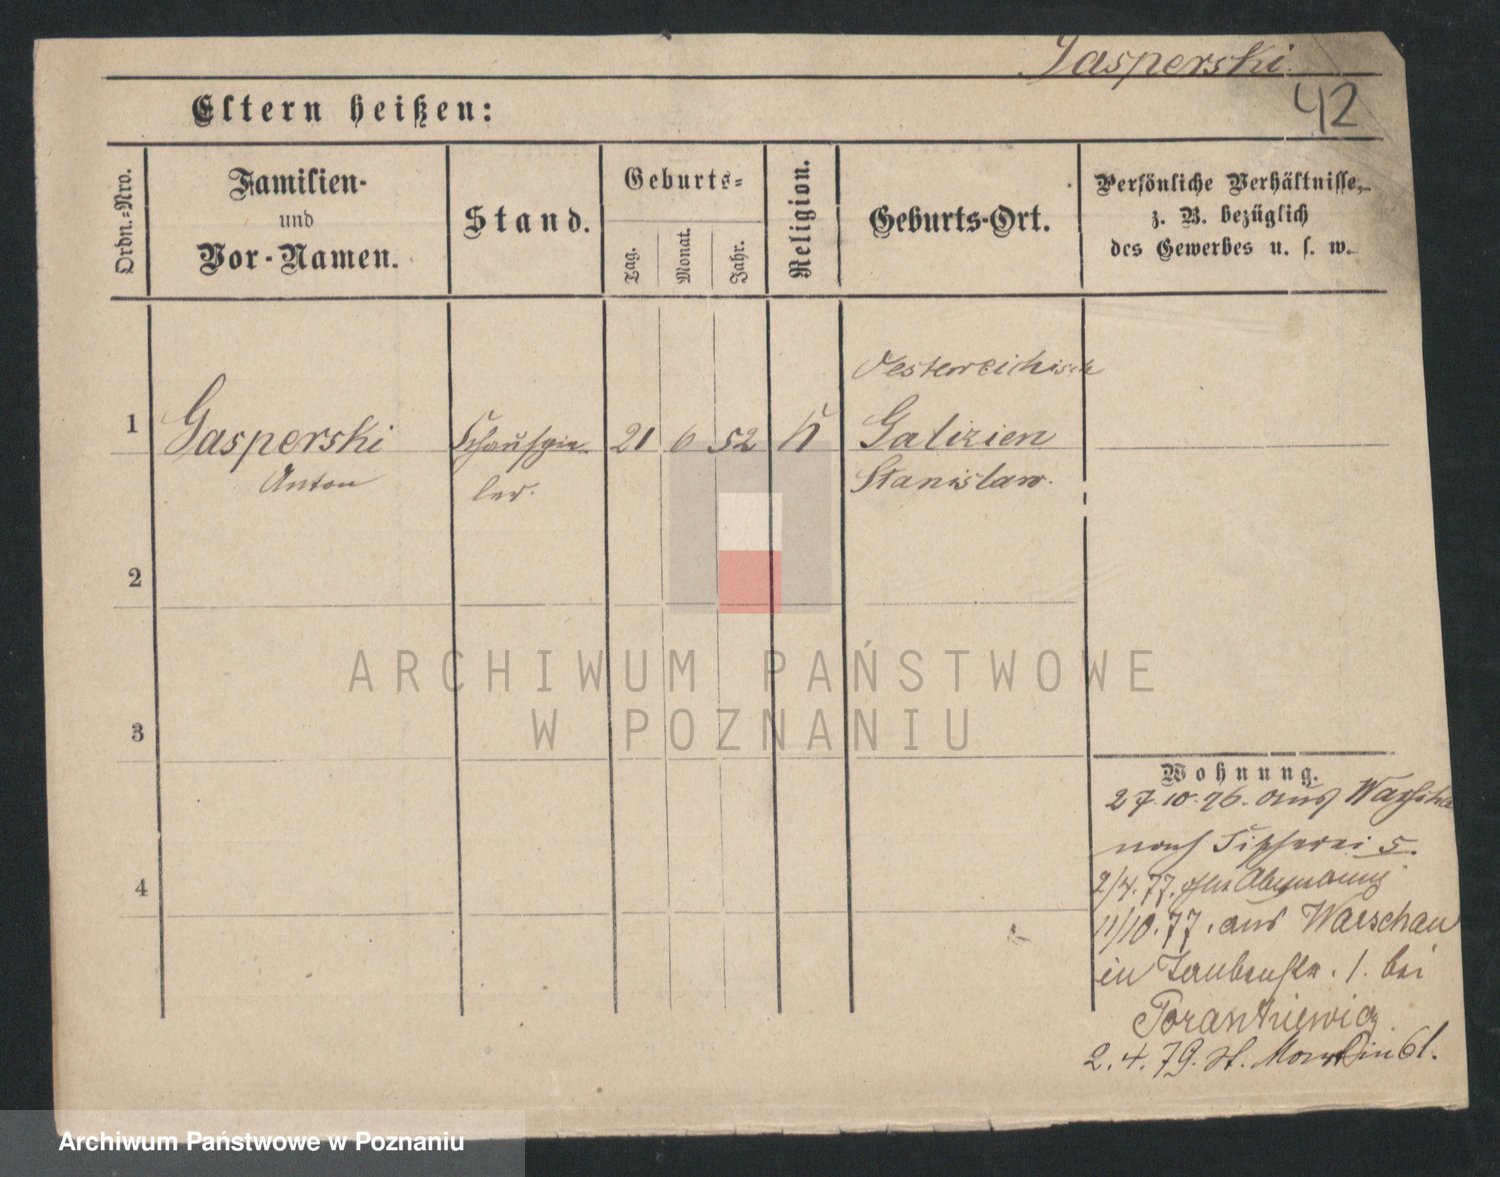 Gasperski.
42
Eltern heißen:
Ordn.-Nro.
Familien-
und
Vor-Namen.
Stand.
Geburts-
Tag.
Monat.
Jahr.
Religion.
Geburts-Ort.
Persönliche Verhältnisse,
z. B. bezüglich
des Gewerbes u. s. w.
Oesterreichisch
1 Gasperski Schauspie- 21 6 52 K Galizien
Anton ler. Stanislaw.
2
3
4
Wohnung.
27.10.76. aus Warschau
nach Fischerei 5.
2/4.77.
11/10.77. aus Warschau
in Taubenstr. 1. bei
Porankiewicz.
2.4.79. St. Martin 61.
ARCHIWUM PAŃSTWOWE
W POZNANIU
Archiwum Państwowe w Poznaniu